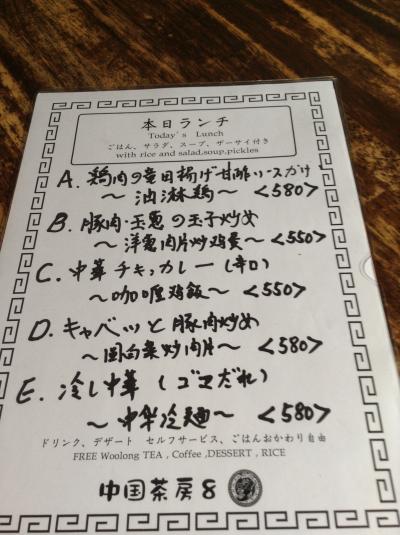 本日ランチ
Today's Lunch
ごはん、サラダ、スープ、ザーサイ付き
with rice and salad,soup,pickles
A. 鶏肉の竜田揚げ甘酢ソースがけ
～油淋鶏～ <580>
B. 豚肉・玉葱の玉子炒め
～洋葱肉片炒鸡蛋～ <550>
C. 中華チキンカレー(辛口)
～咖喱鸡飯～ <550>
D. キャベツと豚肉炒め
～圆白菜炒肉片～ <580>
E. 冷し中華(ゴマだれ)
～中华冷麺～ <580>
ドリンク、デザート セルフサービス、ごはんおかわり自由
FREE Woolong TEA , Coffee ,DESSERT , RICE
中国茶房8